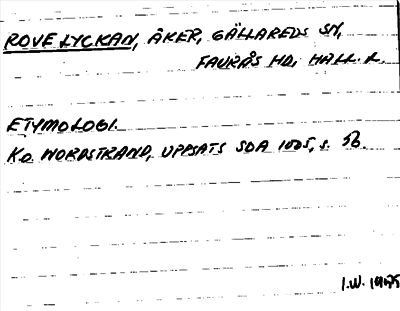 ROVE LYCKAN, ÅKER, GÄLLAREDS SN,
FAURÅS HD, HALL. L.
ETYMOLOGI.
K.O. NORDSTRAND, UPPSATS SOA 1005, s. 56.
I.W. 1975